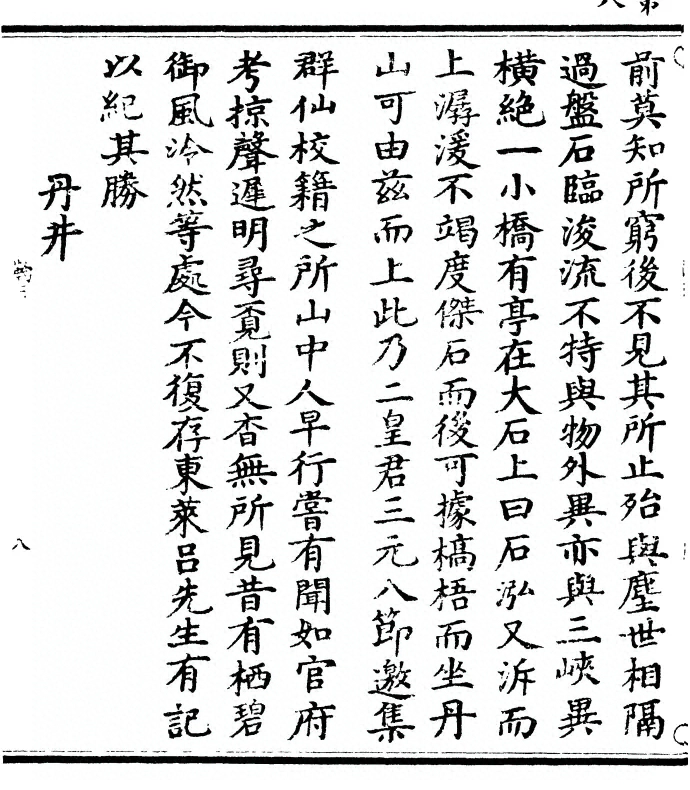 前莫知所窮後不見其所止殆與塵世相隔
過盤石臨浚流不特與物外異亦與三峽異
橫絶一小橋有亭在大石上曰石泓又泝而
上潺湲不竭度傑石而後可據槁梧而坐丹
山可由茲而上此乃二皇君三元八節邀集
群仙校籍之所山中人早行嘗有聞如官府
考掠聲遲明尋覔則又杳無所見昔有栖碧
御風泠然等處今不復存東萊呂先生有記
以紀其勝
丹井
八